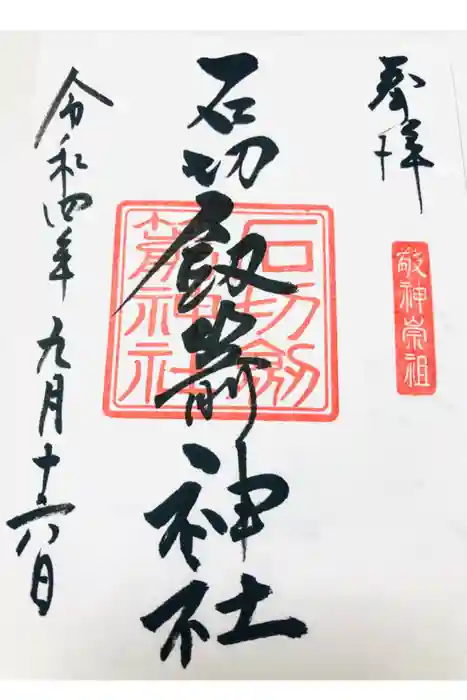 奉拝
敬神崇祖
石切劔箭神社
石切劔箭神社
令和四年九月十六日